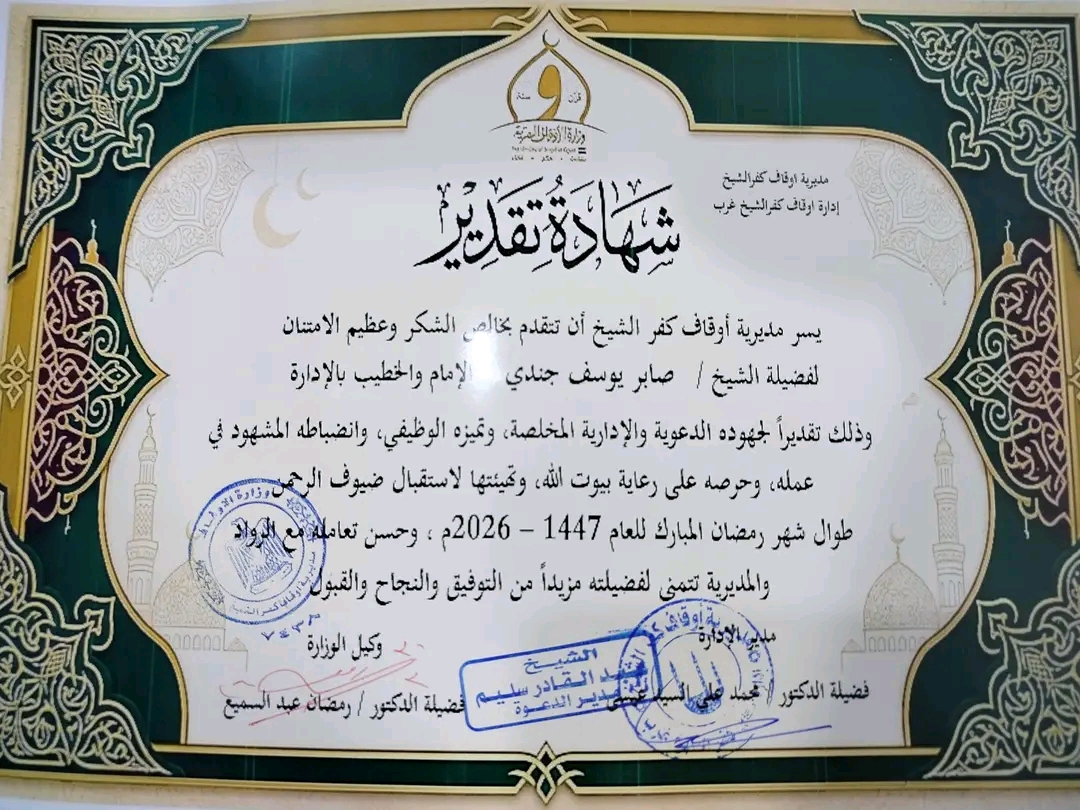 قرآن و سنة
وزارة الأوقاف المصرية
مديرية اوقاف كفرالشيخ
إدارة اوقاف كفرالشيخ غرب
شهادة تقدير
يسر مديرية أوقاف كفر الشيخ أن تتقدم بخالص الشكر وعظيم الامتنان
لفضيلة الشيخ / صابر يوسف جندي الإمام والخطيب بالإدارة
وذلك تقديراً لجهوده الدعوية والإدارية المخلصة، وتميزه الوظيفي، وانضباطه المشهود في
عمله، وحرصه على رعاية بيوت الله، وتهيئتها لاستقبال ضيوف الرحمن
طوال شهر رمضان المبارك للعام 1447 – 2026م ، وحسن تعامله مع الرواد
والمديرية تتمنى لفضيلته مزيداً من التوفيق والنجاح والقبول
وزارة الاوقاف
مديرية اوقاف كفر الشيخ
٧٤٣٣
مدير الإدارة
وكيل الوزارة
الشيخ
عبد القادر سليم
مدير الدعوة
فضيلة الدكتور / محمد علي السيد
فضيلة الدكتور / رمضان عبد السميع